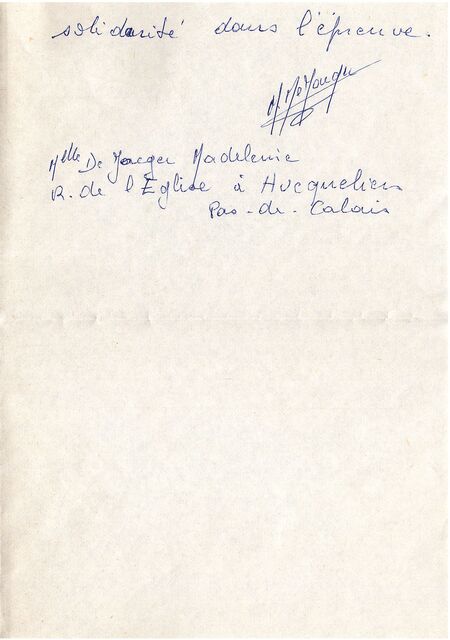 solidarité dans l'épreuve.
Mlle De Jaeger Madeleine
R. de l'Eglise à Hucqueliers
Pas-de-Calais